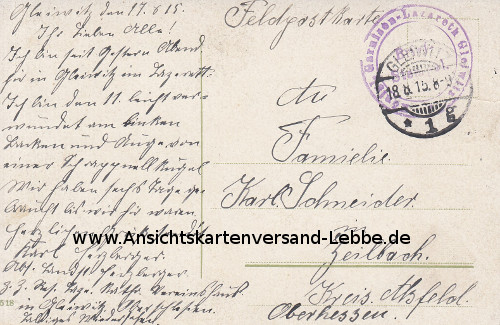 Gleiwitz den 17.8.15.
Ihr Lieben Alle!
Ich bin seit gestern Abend
hir in Gleiwitz im Lazerett.
Ich bin den 11. leicht ver-
wundet am linken
Backen und Auge, von
einer Schrappnellkugel
Wir haben sechs Tage ge-
braucht bis wir hir waren
Karl
in Gleiwitz, Oberschlesien.
Feldpostkarte
Garnison-Lazareth Gleiwitz
GLEIWITZ
18.8.15.8-9
* 1 g
An
Familie
Karl Schneider
in
Zeilbach
Kreis Alsfeld
Oberhessen.
www.Ansichtskartenversand-Lebbe.de
518